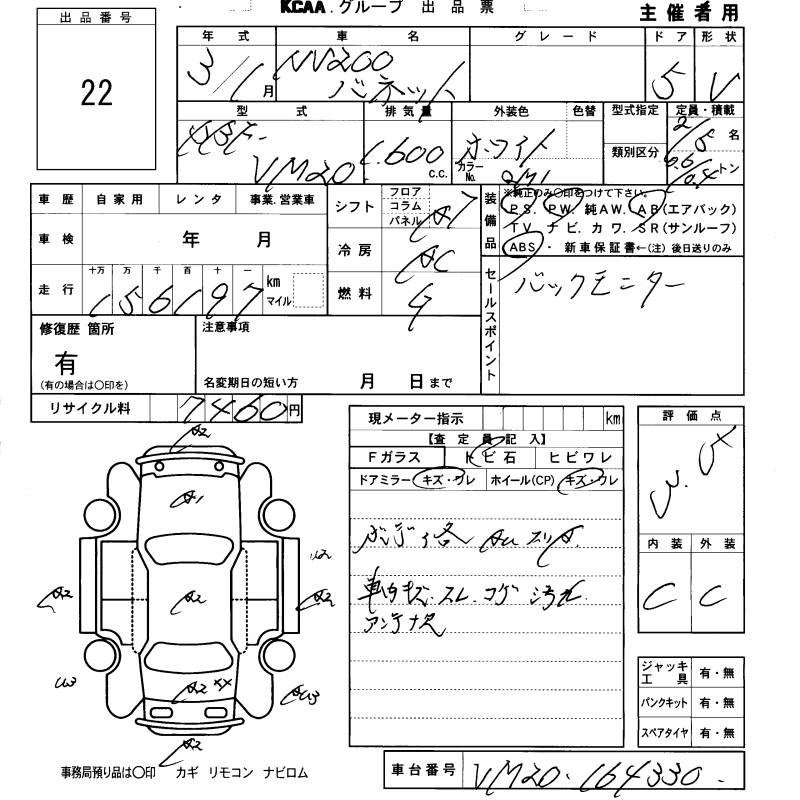 KCAA グループ 出品票
主催者用
出品番号
22
年式 車名 グレード ドア 形状
3/1月 NV200 バネット 5 V
型式 排気量 外装色 色替 型式指定 定員・積載
VM20 1600 c.c. ホワイト カラーNo. 類別区分 2/5名 トン
車歴 自家用 レンタ 事業.営業車
シフト フロア コラム パネル A7
装備品 ※純正のみ〇印をつけて下さい。
PS. PW. 純AW. AB(エアバック)
TV ナビ.カワ.SR(サンルーフ)
ABS・ 新車保証書←(注) 後日送りのみ
車検 年 月
冷房 AC
走行 十万 万 千 百 十 一 km マイル
156197
燃料 G
セールスポイント バックモニター
修復歴 箇所
有
(有の場合は〇印を)
注意事項
名変期日の短い方 月 日まで
リサイクル料 7460円
現メーター指示 km
【査定員記入】
Fガラス トビ石 ヒビワレ
ドアミラー キズ・ワレ ホイール(CP) キズ・ワレ
ボディ各
車内キズ.スレ.コゲ 汚れ.
アンテナ欠
評価点
3.5
内装 外装
C C
A2
A1
U2
A2 A2 A2
U3 A2 XX
A2
ジャッキ工具 有・無
パンクキット 有・無
スペアタイヤ 有・無
事務局預り品は〇印 カギ リモコン ナビロム
車台番号 VM20-164330